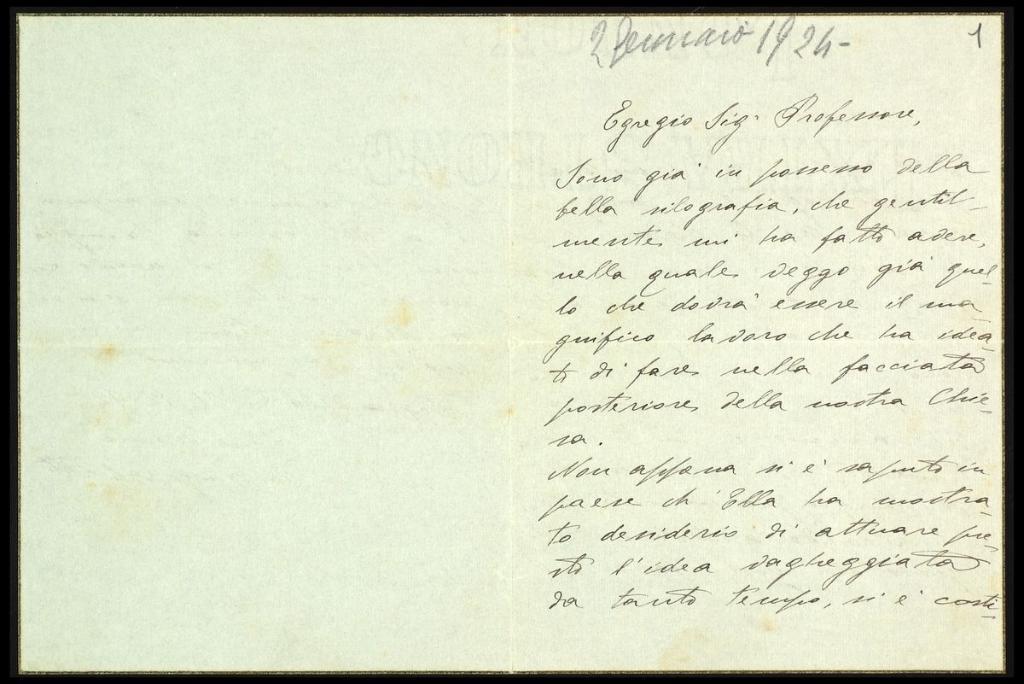 2 Gennaio 1924-
1
Egregio Sig. Professore,
Sono già in possesso della
bella silografia, che gentil-
mente mi ha fatto avere,
nella quale veggo già quel-
lo che dovrà essere il ma-
gnifico lavoro che ha idea-
to di fare nella facciata
posteriore della nostra Chie-
sa.
Non appena si è saputo in
paese ch'Ella ha mostra-
to desiderio di attuare pre-
sto l'idea vagheggiata
da tanto tempo, si è costi-